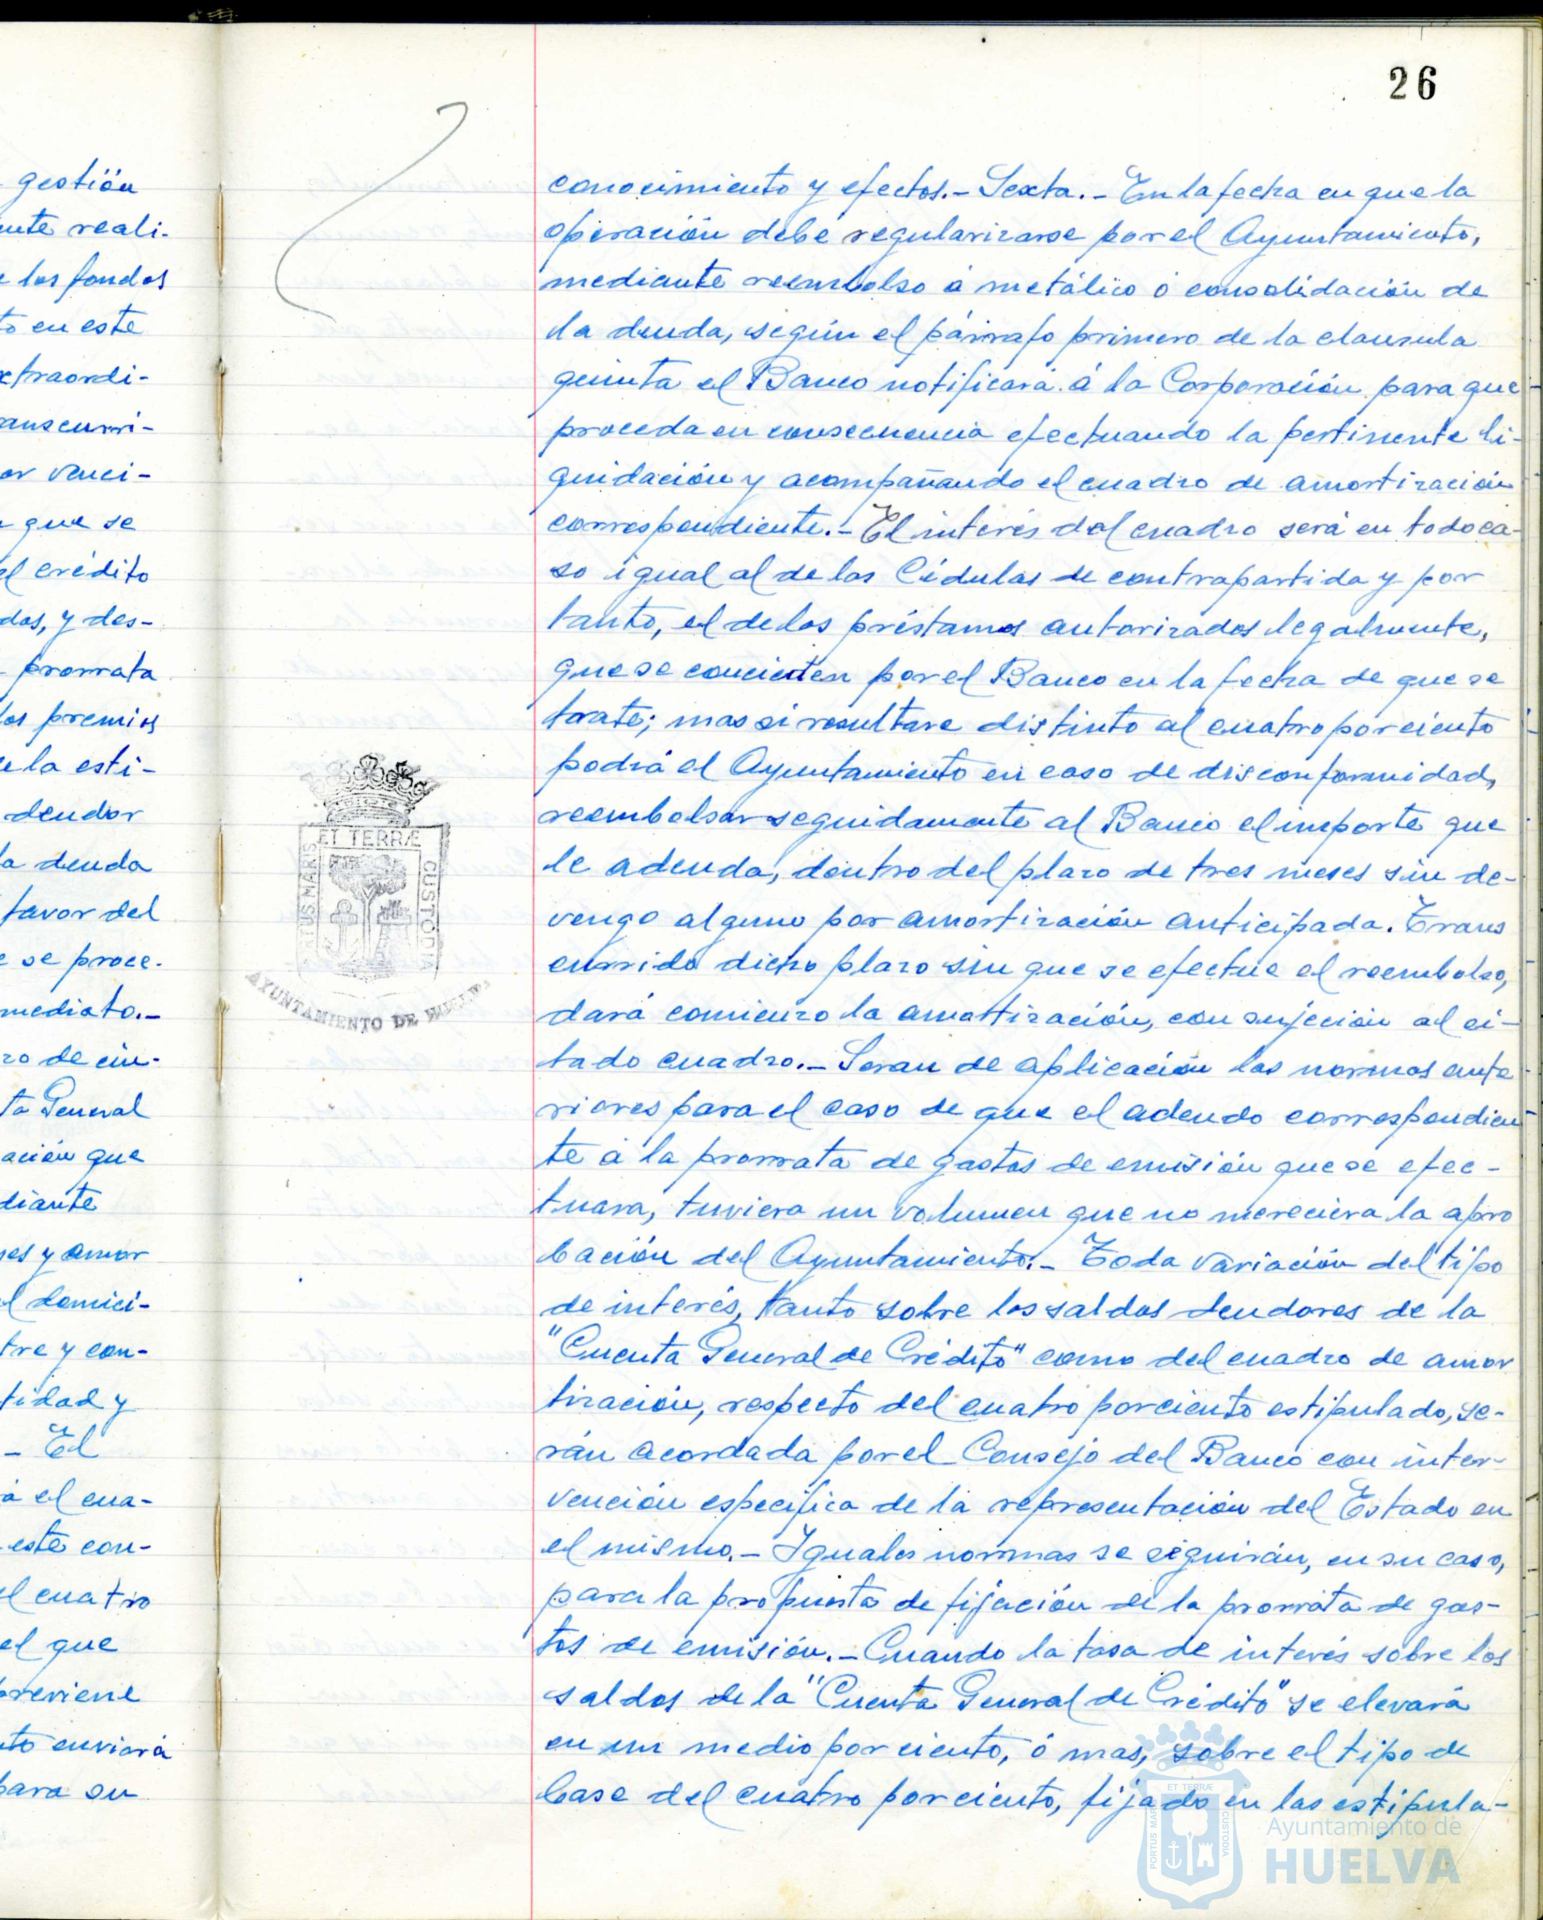 26
gestión
nte reali-
e los fondos
to en este
xtraordi-
anscurri-
or venci-
que se
el crédito
dos, y des-
prorrata
los premios
e la esti-
deudor
la deuda
favor del
e se proce-
mediato.-
zo de cin-
ta General
ación que
diante
ses y amor
l domici-
tre y con-
tidad y
- El
á el cua-
este con-
el cuatro
el que
previene
nto enviará
para su
conocimiento y efectos.- Sexta.- En la fecha en que la
operación debe regularizarse por el Ayuntamiento,
mediante reembolso á metálico ó consolidación de
la deuda, según el párrafo primero de la clausula
quinta el Banco notificará á la Corporación para que
proceda en consecuencia efectuando la pertinente li-
quidación y acompañando el cuadro de amortización
correspondiente.- El interés del cuadro será en todo ca-
so igual al de las Cédulas de contrapartida y por
tanto, el de los préstamos autorizados legalmente,
que se concierten por el Banco en la fecha de que se
trate; mas si resultare distinto al cuatro por ciento
podrá el Ayuntamiento en caso de disconformidad,
reembolsar seguidamente al Banco el importe que
le adeuda, dentro del plazo de tres meses sin de-
vengo alguno por amortización anticipada. Trans
currido dicho plazo sin que se efectue el reembolso,
dará comienzo la amortización, con sujeción al ci-
tado cuadro.- Seran de aplicación las normas ante
riores para el caso de que el adeudo correspondien
te á la prorrata de gastos de emisión que se efec-
tuara, tuviera un volumen que no mereciera la apro
bación del Ayuntamiento.- Toda variación del tipo
de interés, tanto sobre los saldos deudores de la
"Cuenta General de Crédito" como del cuadro de amor
tización, respecto del cuatro por ciento estipulado, se-
rán acordada por el Consejo del Banco con inter-
vención especifica de la representación del Estado en
el mismo.- Iguales normas se seguirán, en su caso,
para la propuesta de fijación de la prorrata de gas-
tos de emisión.- Cuando la tasa de interés sobre los
saldos de la "Cuenta General de Crédito" se elevará
en un medio por ciento, ó mas, sobre el tipo de
base del cuatro por ciento, fijado en las estipula-
PORTUS MARIS
ET TERRÆ
CUSTODIA
AYUNTAMIENTO DE HUELVA
PORTUS MARIS
ET TERRÆ
CUSTODIA
Ayuntamiento de
HUELVA